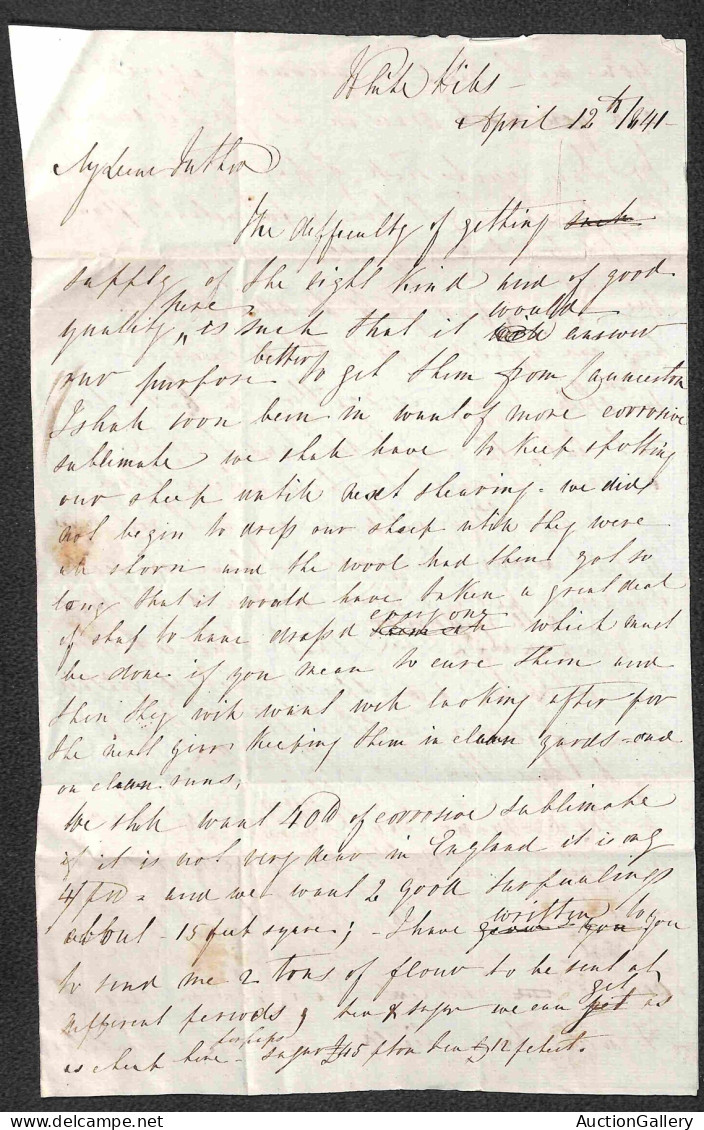 White Hills
April 12th 1841
My Dear Father
The difficulty of getting such
supply of the right kind and of good
quality here is such that it would answer
our purpose better to get them from Launceston
I shall soon been in want of more corrosive
sublimate we shall have to keep spotting
our sheep until next shearing - we did
not begin to dress our sheep until they were
all shorn and the wool had then got so
long that it would have taken a great deal
of stuff to have dress'd every one which must
be done if you mean to cure them and
then they will want well looking after for
the next year keeping them in clean yards - and
on clean runs,
We shall want 40lb of corrosive sublimate
if it is not very dear in England it is only
4/ - and we want 2 good tarpaulings
about - 15 feet square; - I have written to you
to send me 2 tons of flour to be sent at
different periods, tea & sugar we can get as
as cheap here - perhaps sugar £45 p ton tea £12 p chest.
AuctionGallery